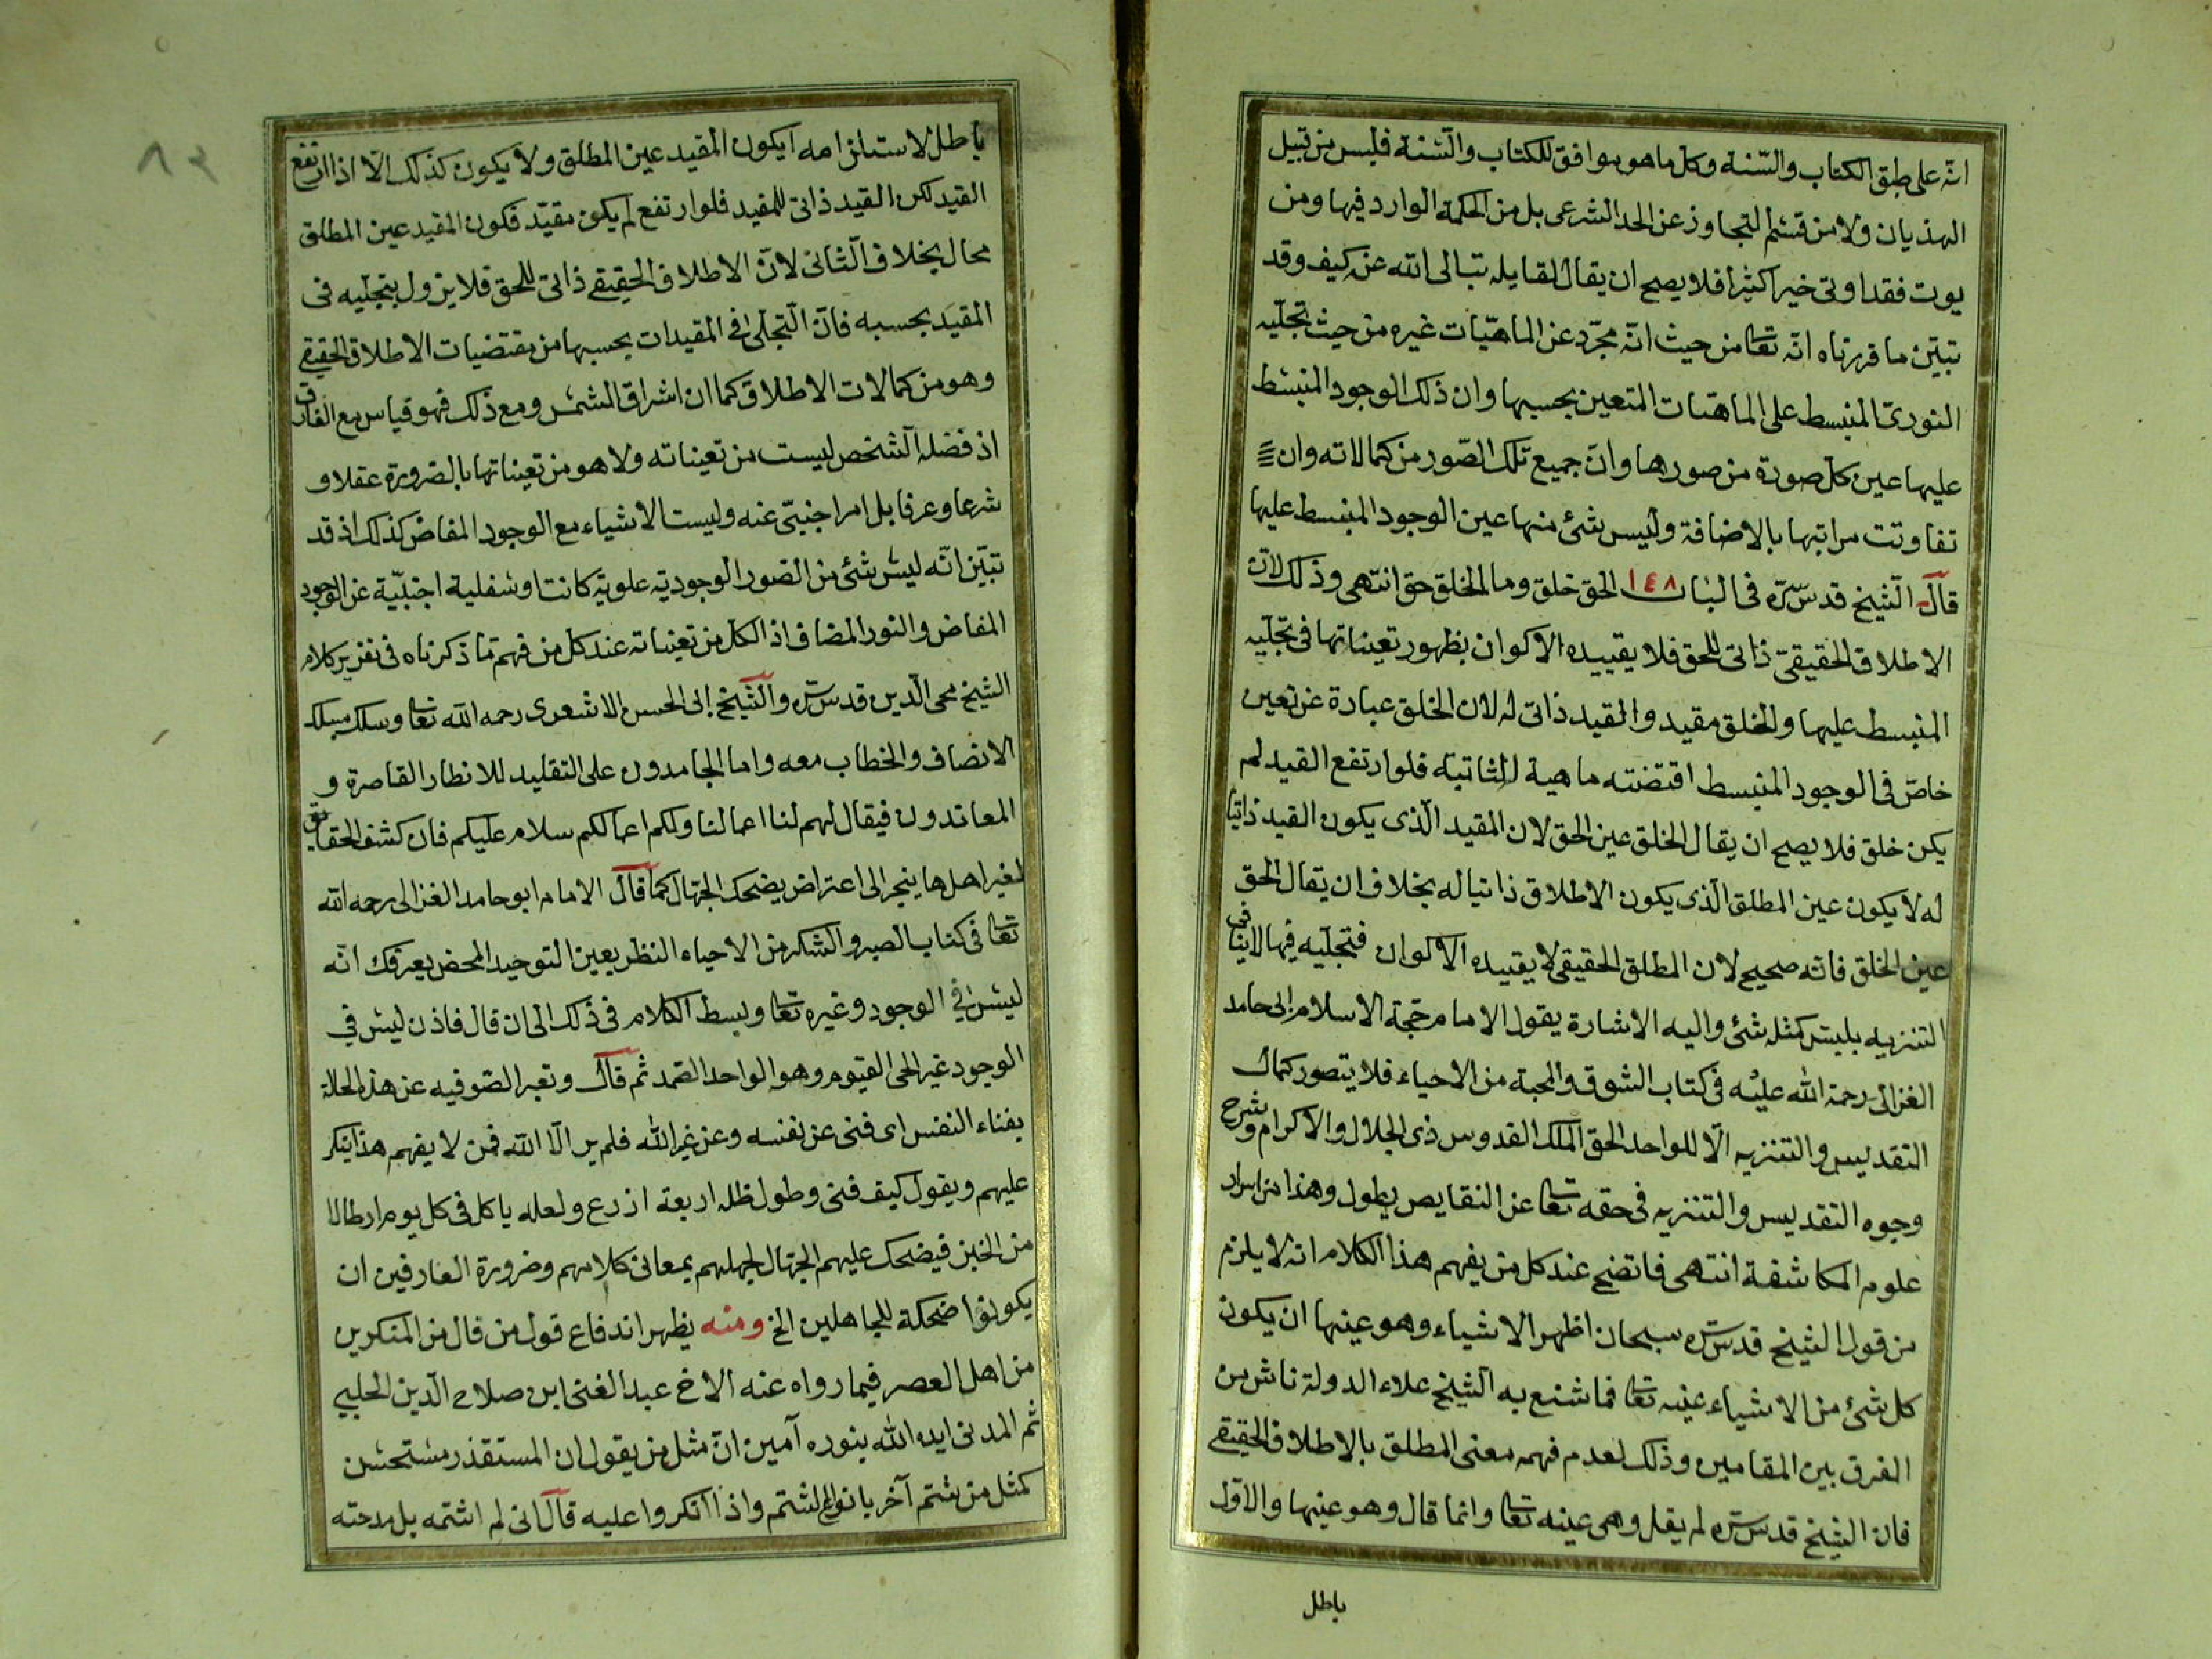 انّه على طبق الكتاب والسّنة وكل ما هو موافق للكتاب والسّنة فليس من قبيل
الهذيان ولا من قسم التجاوز عن الحد الشرعى بل من الحكمة الوارد فيها ومن
يوت فقد اوتى خيرا كثيرا فلا يصح ان يقال لقايله تب الى الله عز كيف وقد
تبيّن ما قررناه انّه تعا من حيث انّه مجرّد عن الماهيّات غيره من حيث تجلّيه
النورىّ المنبسط على الماهيات المتعين بحسبها وان ذلك الوجود المنبسط
عليها عين كلّ صورة من صورها وانّ جميع تلك الصّور من كمالاته وان
تفاوتت مراتبها بالاضافة وليس شئ منها عين الوجود المنبسط عليها
قال الشيخ قدس سرّه فى الباب ١٤٨ الحق خلق وما الخلق حق انتهى وذلك لانّ
الاطلاق الحقيقىّ ذاتى للحق فلا يقييده الاكوان بظهور تعيناتها فى تجلّيه
المنبسط عليها والخلق مقيد والقيد ذاتى له لان الخلق عبارة عن تعين
خاصّ فى الوجود المنبسط اقتضته ماهية الثاتية فلو ارتفع القيد لم
يكن خلق فلا يصح ان يقال الخلق عين الحق لان المقيد الّذى يكون القيد ذاتيا
له لا يكون عين المطلق الّذى يكون الاطلاق ذاتيا له بخلاف ان يقال الحق
عين الخلق فانّه صحيح لان المطلق الحقيقى لا يقييده الاكوان فتجلّيه فيها لا ينافى
التنزيه بليس كمثله شئ واليه الاشارة يقول الامام حجّة الاسلام ابى حامد
الغزالى رحمة الله عليه فى كتاب الشوق والمحبة من الاحياء فلا يتصور كمال
التقديس والتنزيه الّا للواحد الحق الملك القدوس ذى الجلال والاكرام وشرح
وجوه التقديس والتنزيه فى حقه تعا عن النقايص يطول وهذا من اسرار
علوم المكاشفة انتهى فاتضح عند كل من يفهم هذا الكلام انه لا يلزم
من قول الشيخ قدس سرّه سبحان اظهر الاشياء وهو عينها ان يكون
كل شئ من الاشياء عينه تعا فما شنع به الشيخ علاء الدولة ناش من
الفرق بين المقامين وذلك لعدم فهمه معنى المطلق بالاطلاق الحقيقى
فان الشيخ قدس سرّه لم يقل وهى عينه تعا وانما قال وهو عينها والاوّل
باطل
٨٢
باطل لاستلزامه ان يكون المقيد عين المطلق ولا يكون كذلك الّا اذا ارتفع
القيد لكن القيد ذاتى للمقيد فلو ارتفع لم يكن مقيّد فكون المقيد عين المطلق
محال بخلاف الثانى لانّ الاطلاق الحقيقى ذاتى للحق فلا يزول بتجلّيه فى
المقيد بحسبه فانّ التجلّى فى المقيدات بحسبها من مقتضيات الاطلاق الحقيقى
وهو من كمالات الاطلاق كما ان اشراق الشمس ومع ذلك فهو قياس مع الفارق
اذ فضلة الشخص ليست من تعيناته ولا هو من تعيناتها بالضرورة عقلا و
شرعا وعرفا بل امر اجنبىّ عنه وليست الاشياء مع الوجود المفاض كذلك اذ قد
تبيّن انّه ليس شئ من الصور الوجودية علوية كانت او سفلية اجنبيّة عن الوجود
المفاض والنور المضاف اذ الكل من تعيناته عند كل من فهم ما ذكرناه فى تقرير كلام
الشيخ محى الدّين قدس سرّه والشيخ ابى الحسن الاشعرى رحمه الله تعا وسلك مسلك
الانصاف والخطاب معه واما الجامدون على التقليد للانظار القاصرة و
المعاندون فيقال لهم لنا اعمالنا ولكم اعمالكم سلام عليكم فان كشف الحقايق
لغير اهلها ينجر الى اعتراض يضحك الجهّال كما قال الامام ابو حامد الغزالى رحمه الله
تعا فى كتاب الصبر والشكر من الاحياء النظر بعين التوحيد المحض يعرفك انّه
ليس فى الوجود وغيره تعا وبسط الكلام فى ذلك الى ان قال فاذن ليس فى
الوجود غير الحى القيوم وهو الواحد الصمد ثم قال وتعبر الصّوفيه عن هذه الحالة
بفناء النفس اى فنى عن نفسه وعن غير الله فلم ير الّا الله فمن لا يفهم هذا ينكر
عليهم ويقول كيف فنى وطول ظله اربعة اذرع ولعله ياكل فى كل يوم ارطالا
من الخبز فيضحك عليهم الجهّال لجهلهم بمعانى كلامهم وضرورة العارفين ان
يكونوا ضحكة للجاهلين الخ ومنه يظهر اندفاع قول من قال من المنكرين
من اهل العصر فيما رواه عنه الاخ عبد الغنى ابن صلاح الدّين الحلبى
ثم المدنى ايده الله بنوره آمين انّ مثل من يقول ان المستقذر مستحسن
كمثل من شتم آخر بانواع الشتم واذا انكروا عليه قال انى لم اشتمه بل مدحته